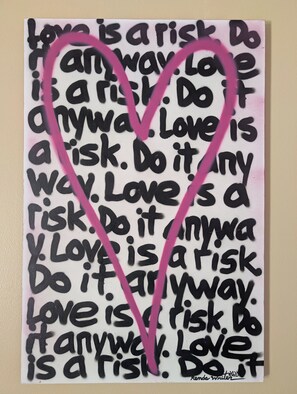 Love is a risk. Do
it anyway. Love
is a risk. Do it
anyway. Love is
a risk. Do it any
way. Love is a
risk. Do it anywa
y. Love is a risk
Do it anyway.
Love is a risk. Do
it anyway. Love
is a risk. Do it